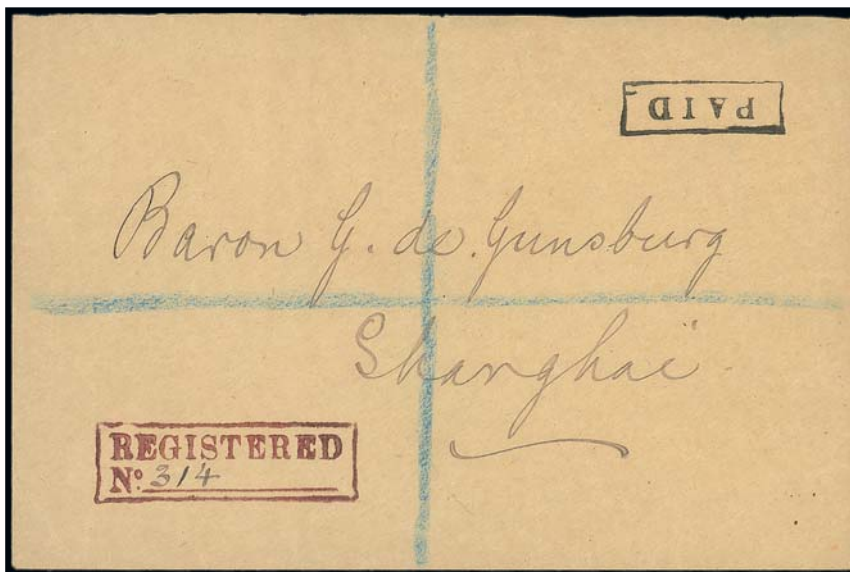 PAID
Baron G. de Gunsburg
Shanghaï
REGISTERED
Nº 314